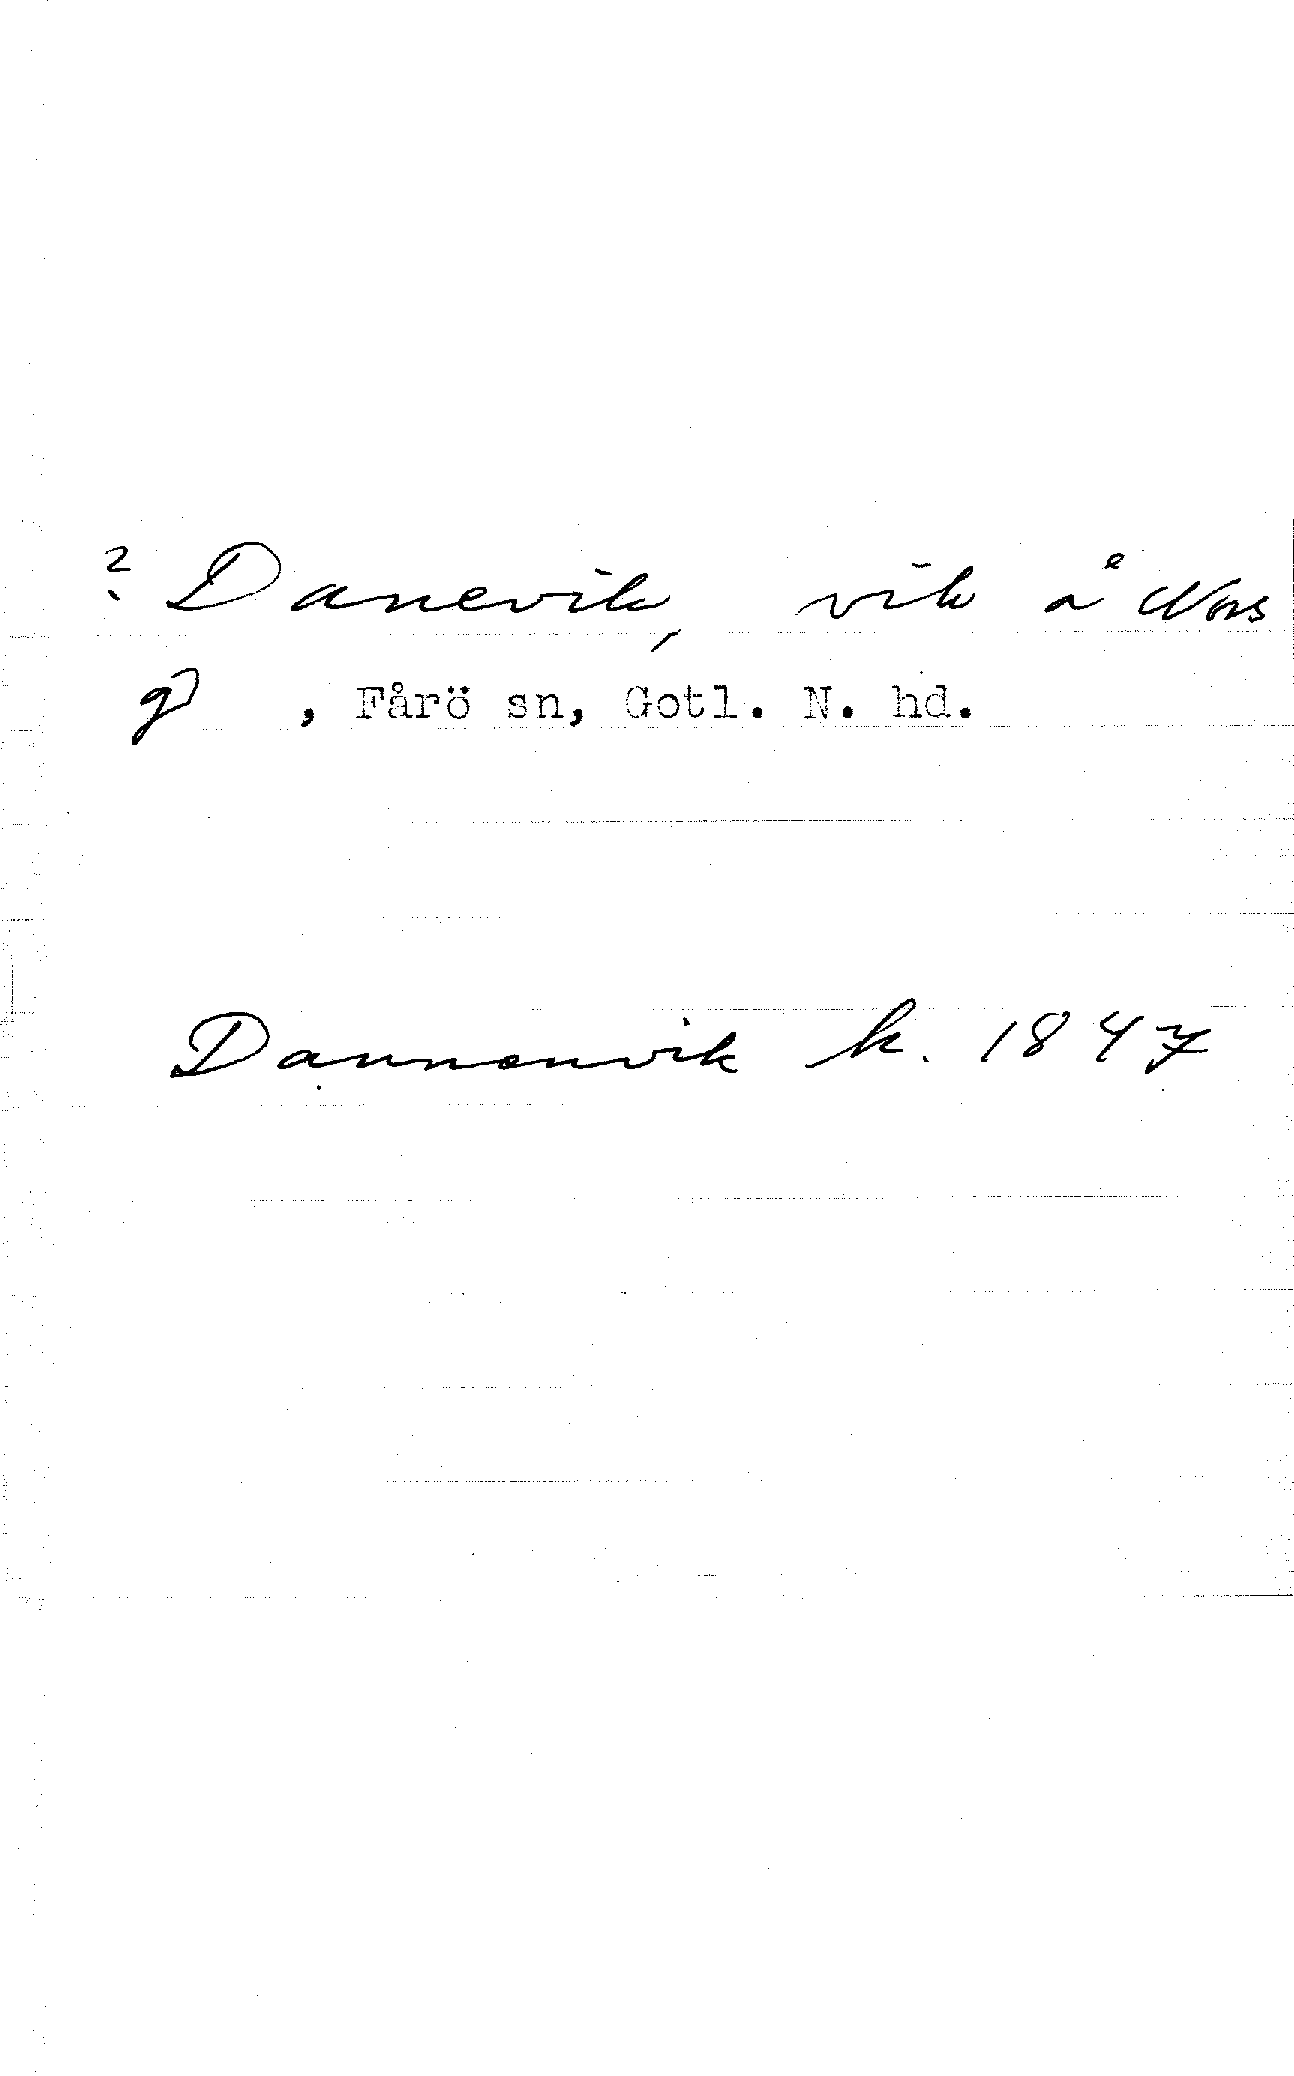 ? Danevik, vik å Nors
g) , Fårö sn, Gotl. N. hd.
Dannenvik k. 1847